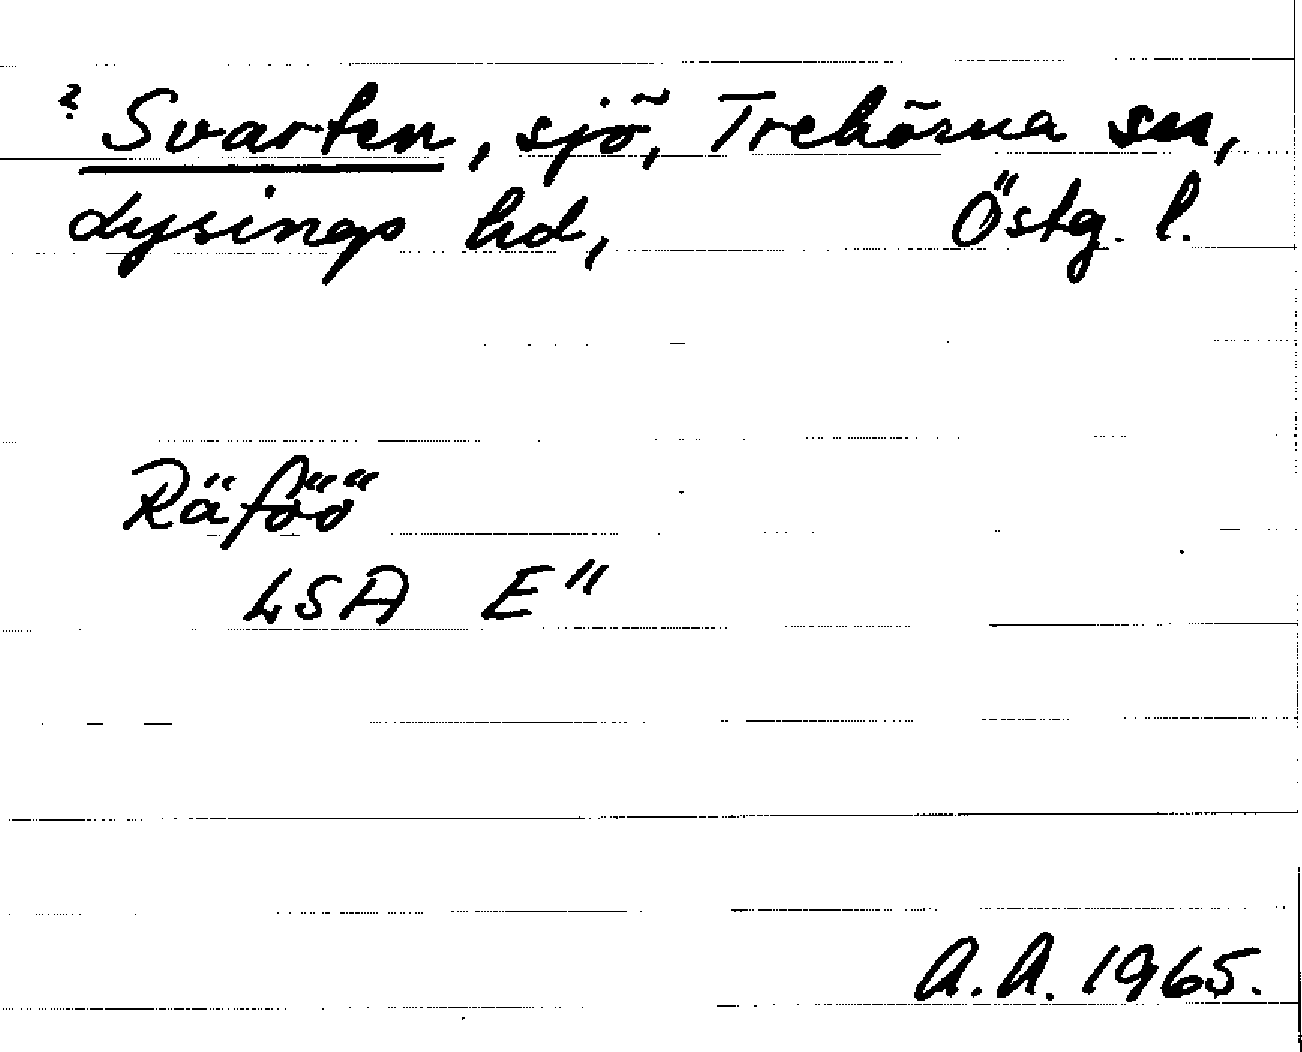 ? Svarten, sjö, Trehörna sn,
Lysings hd, Östg. l.
Räföö
LSA E"
A.A. 1965.